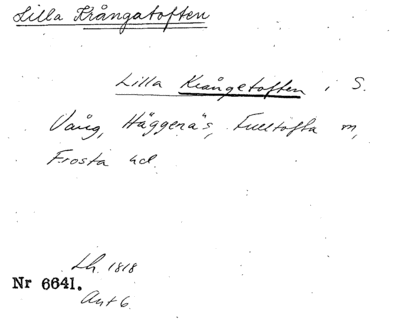 Lilla Krångatoften
Lilla Krångetoften i S.
Vång, Häggenäs, Fulltofta m,
Frosta hd.
Lh. 1818
Nr 6641.
Ant 6.